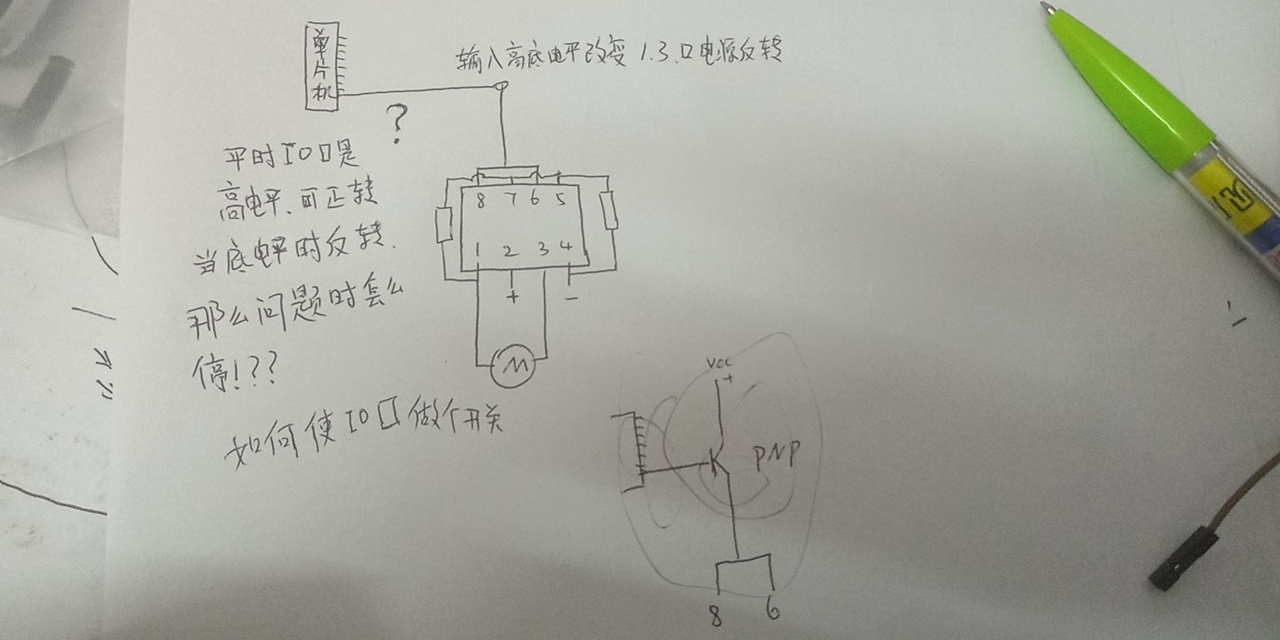 单片机
输入高底电平改变1.3.口电源反转
?
平时IO口是
高电平、可正转
当底电平时反转.
那么问题时怎么
停!??
如何使IO口做个开关
8 7 6 5
1 2 3 4
+ -
M
VCC
+
K PNP
8 6